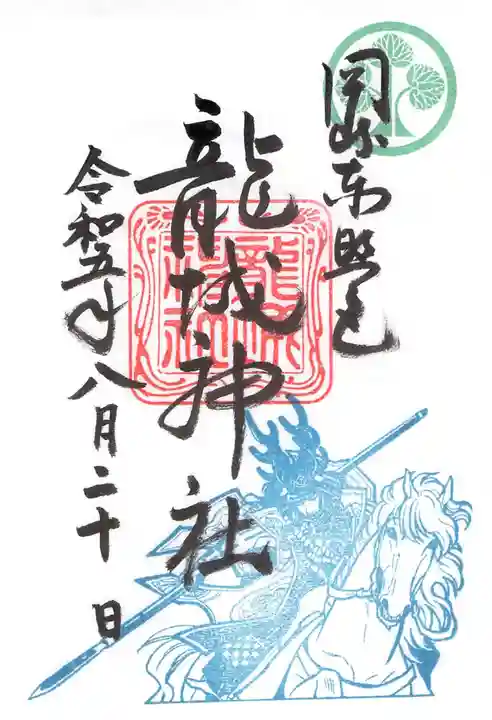 岡崎東照宮
龍城神社
令和五年
八月二十日
龍城神社